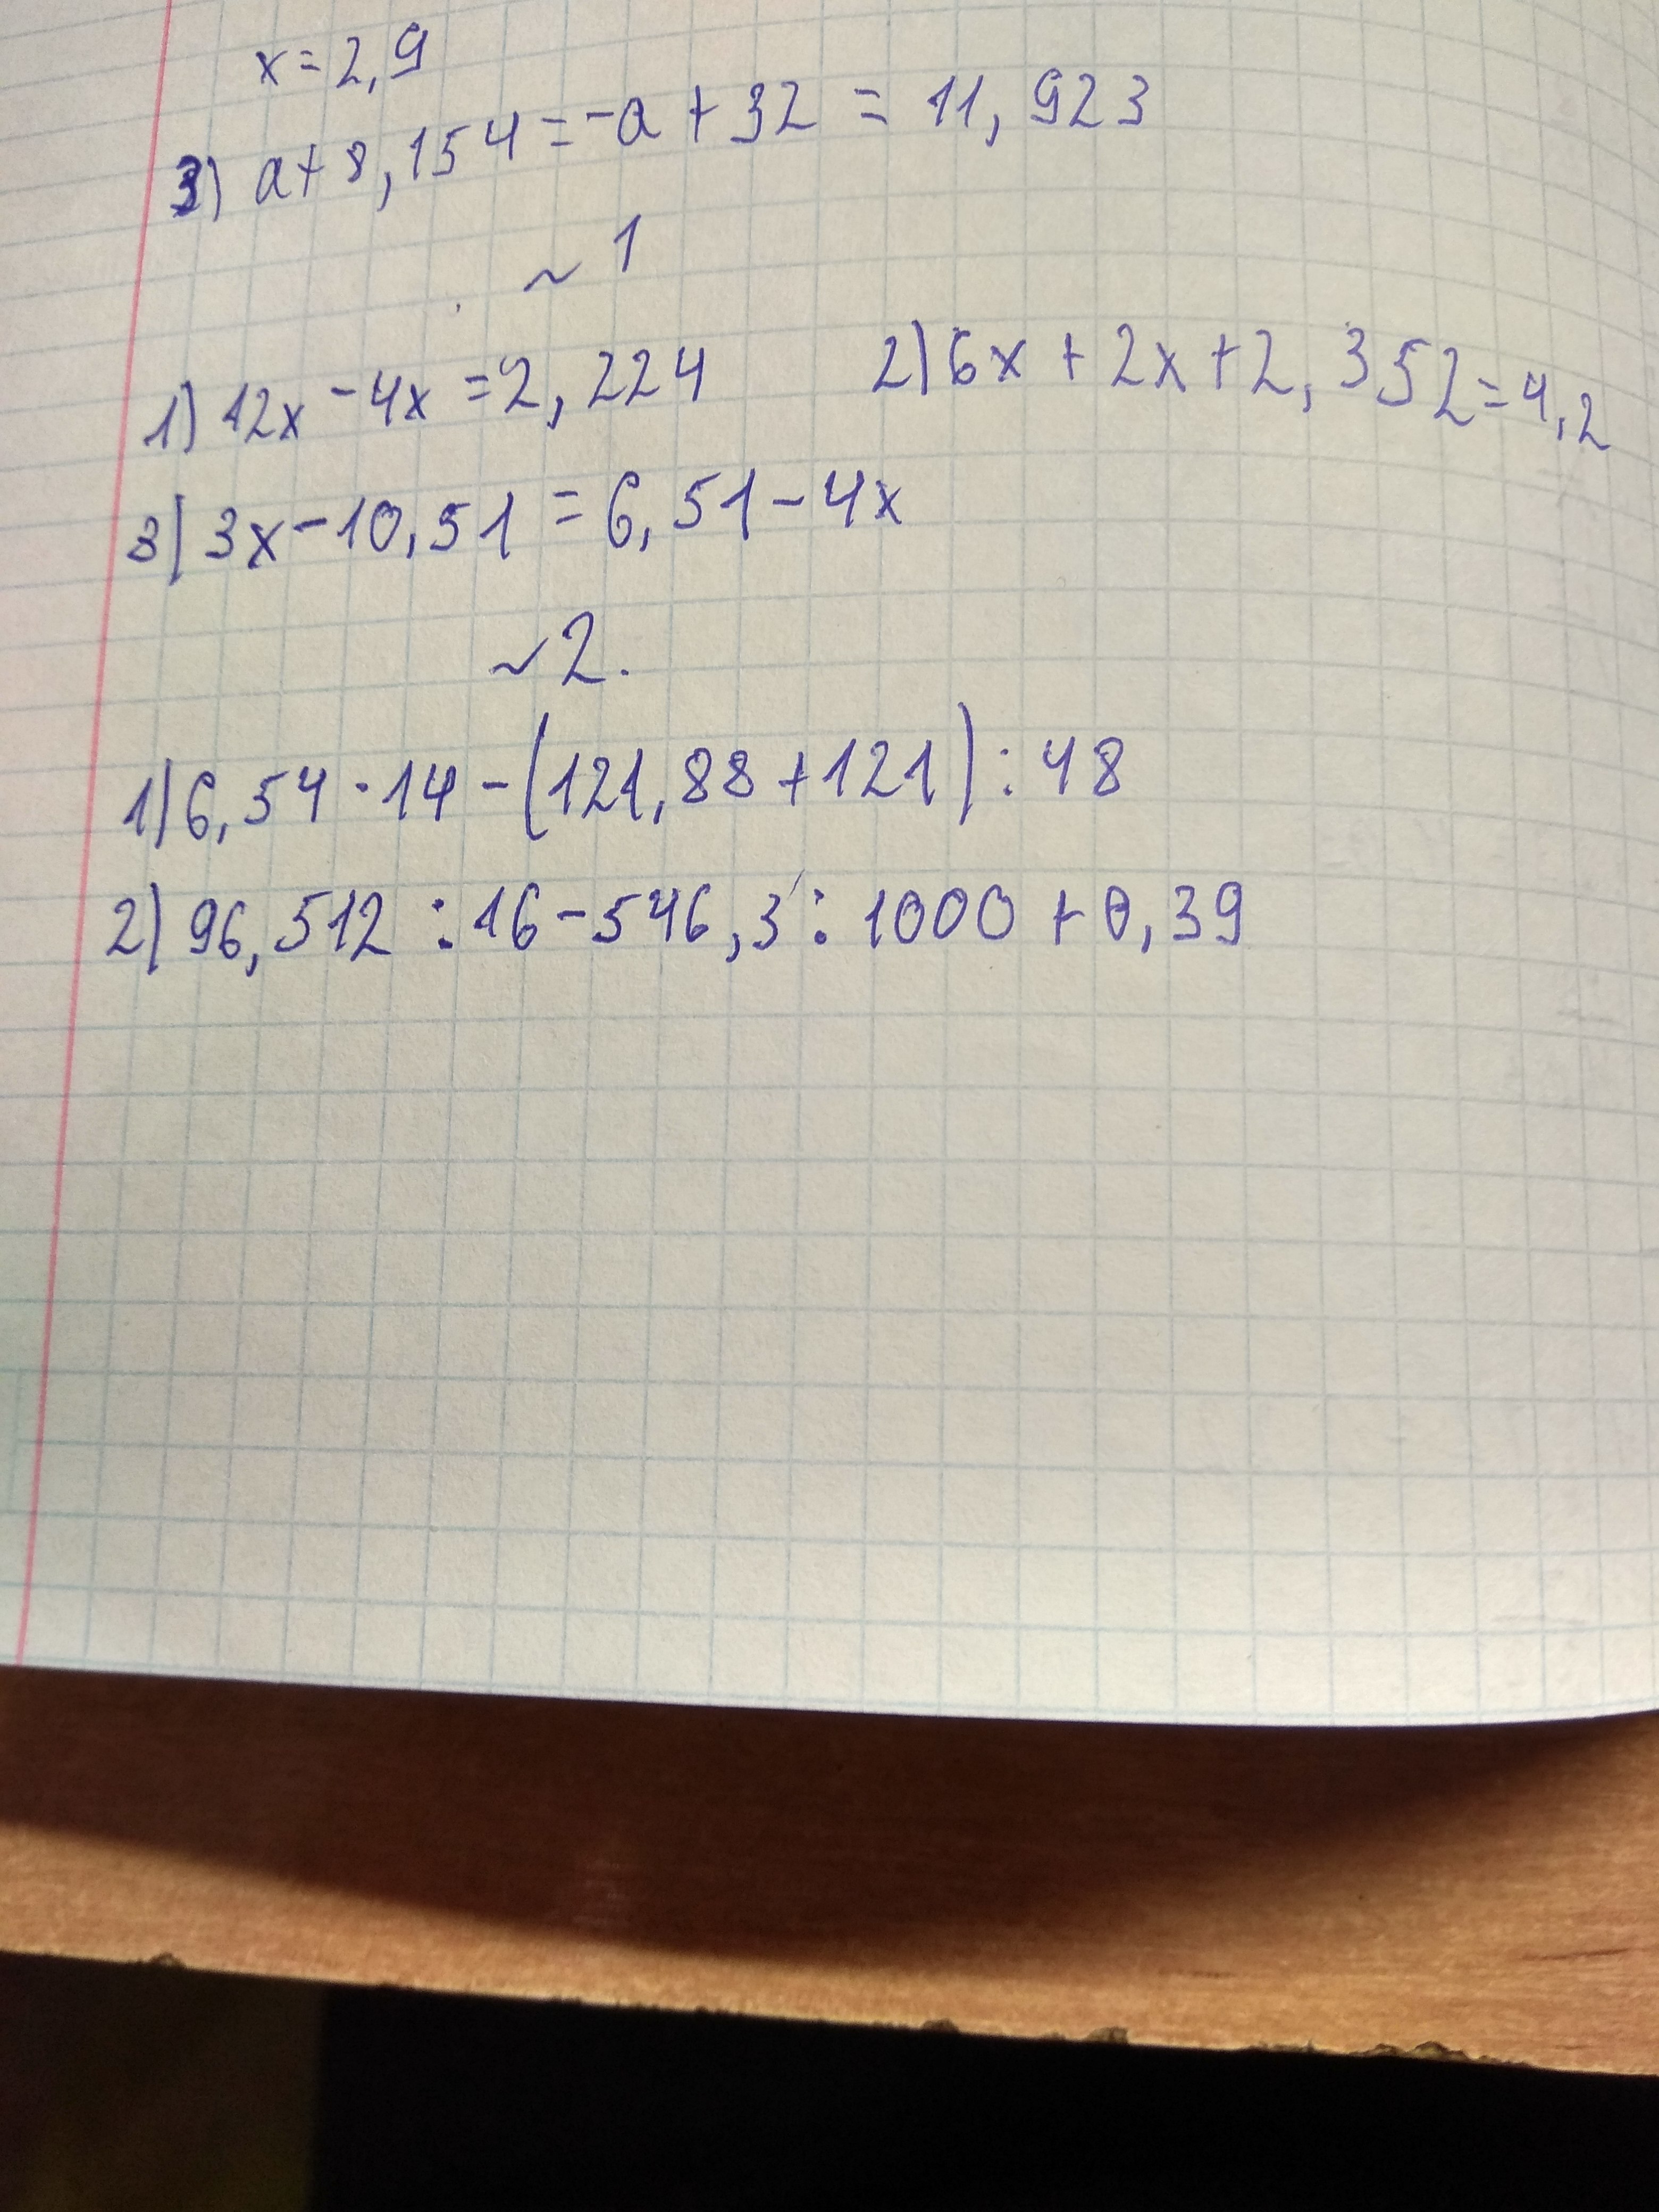 x=2,9
3) a+8,154=-a+32=11,923
~1
1) 12x-4x=2,224 2) 6x+2x+2,352=4,2
3) 3x-10,51=6,51-4x
~2.
1) 6,54·14-(121,88+121):48
2) 96,512:16-546,3:1000+0,39